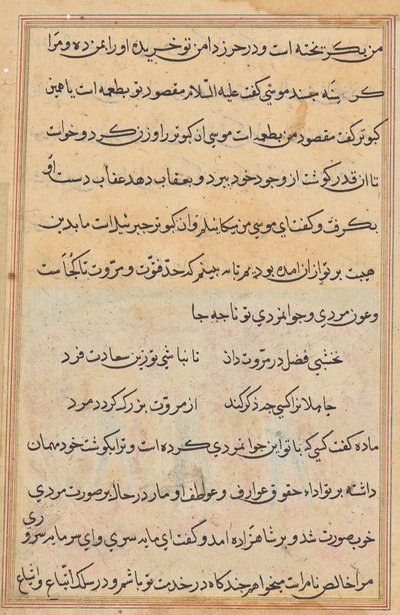 من بگریخته است و در حرز دامن تو خزیده او را بمن ده و مرا
گرسنه مپسند موسی گفت علیه السلام مقصود تو بطعمه است یا بهمین
کبوتر گفت مقصود من بطعمه است موسی ان کبوتر را وزن کرد و خواست
تا ان قدر گوشت از وجود خود ببرد و بعقاب دهد عقاب دست او
بگرفت و گفت ای موسی من میکائیلم و ان کبوتر جبرئیل است ما بدین
هیبت بر تو از ان امده بودیم تا به بینیم که حد فتوت و مروت تا کجاست
و عون مردی و جوانمردی تو تا چه جا
نخشبی فضل در مروت دان تا نباشی تو زین سعادت فرد
جاهلانرا کسی چه ذکر کند از مروت بزرگ گردد مرد
ماده گفت کسی که با تو این جوانمردی کرده است و ترا بگوشت خود مهمان
داشته بر تو اداء حقوق عوارف و عواطف او مار در حال بر صورت مردی
خوب صورت شد و بر شاهزاده امد و گفت ای مایه سری و ای سرمایه سروری
مرا خالص نام است میخواهم چند گاه در خدمت تو باشم و در سلک اتباع و اشیاع